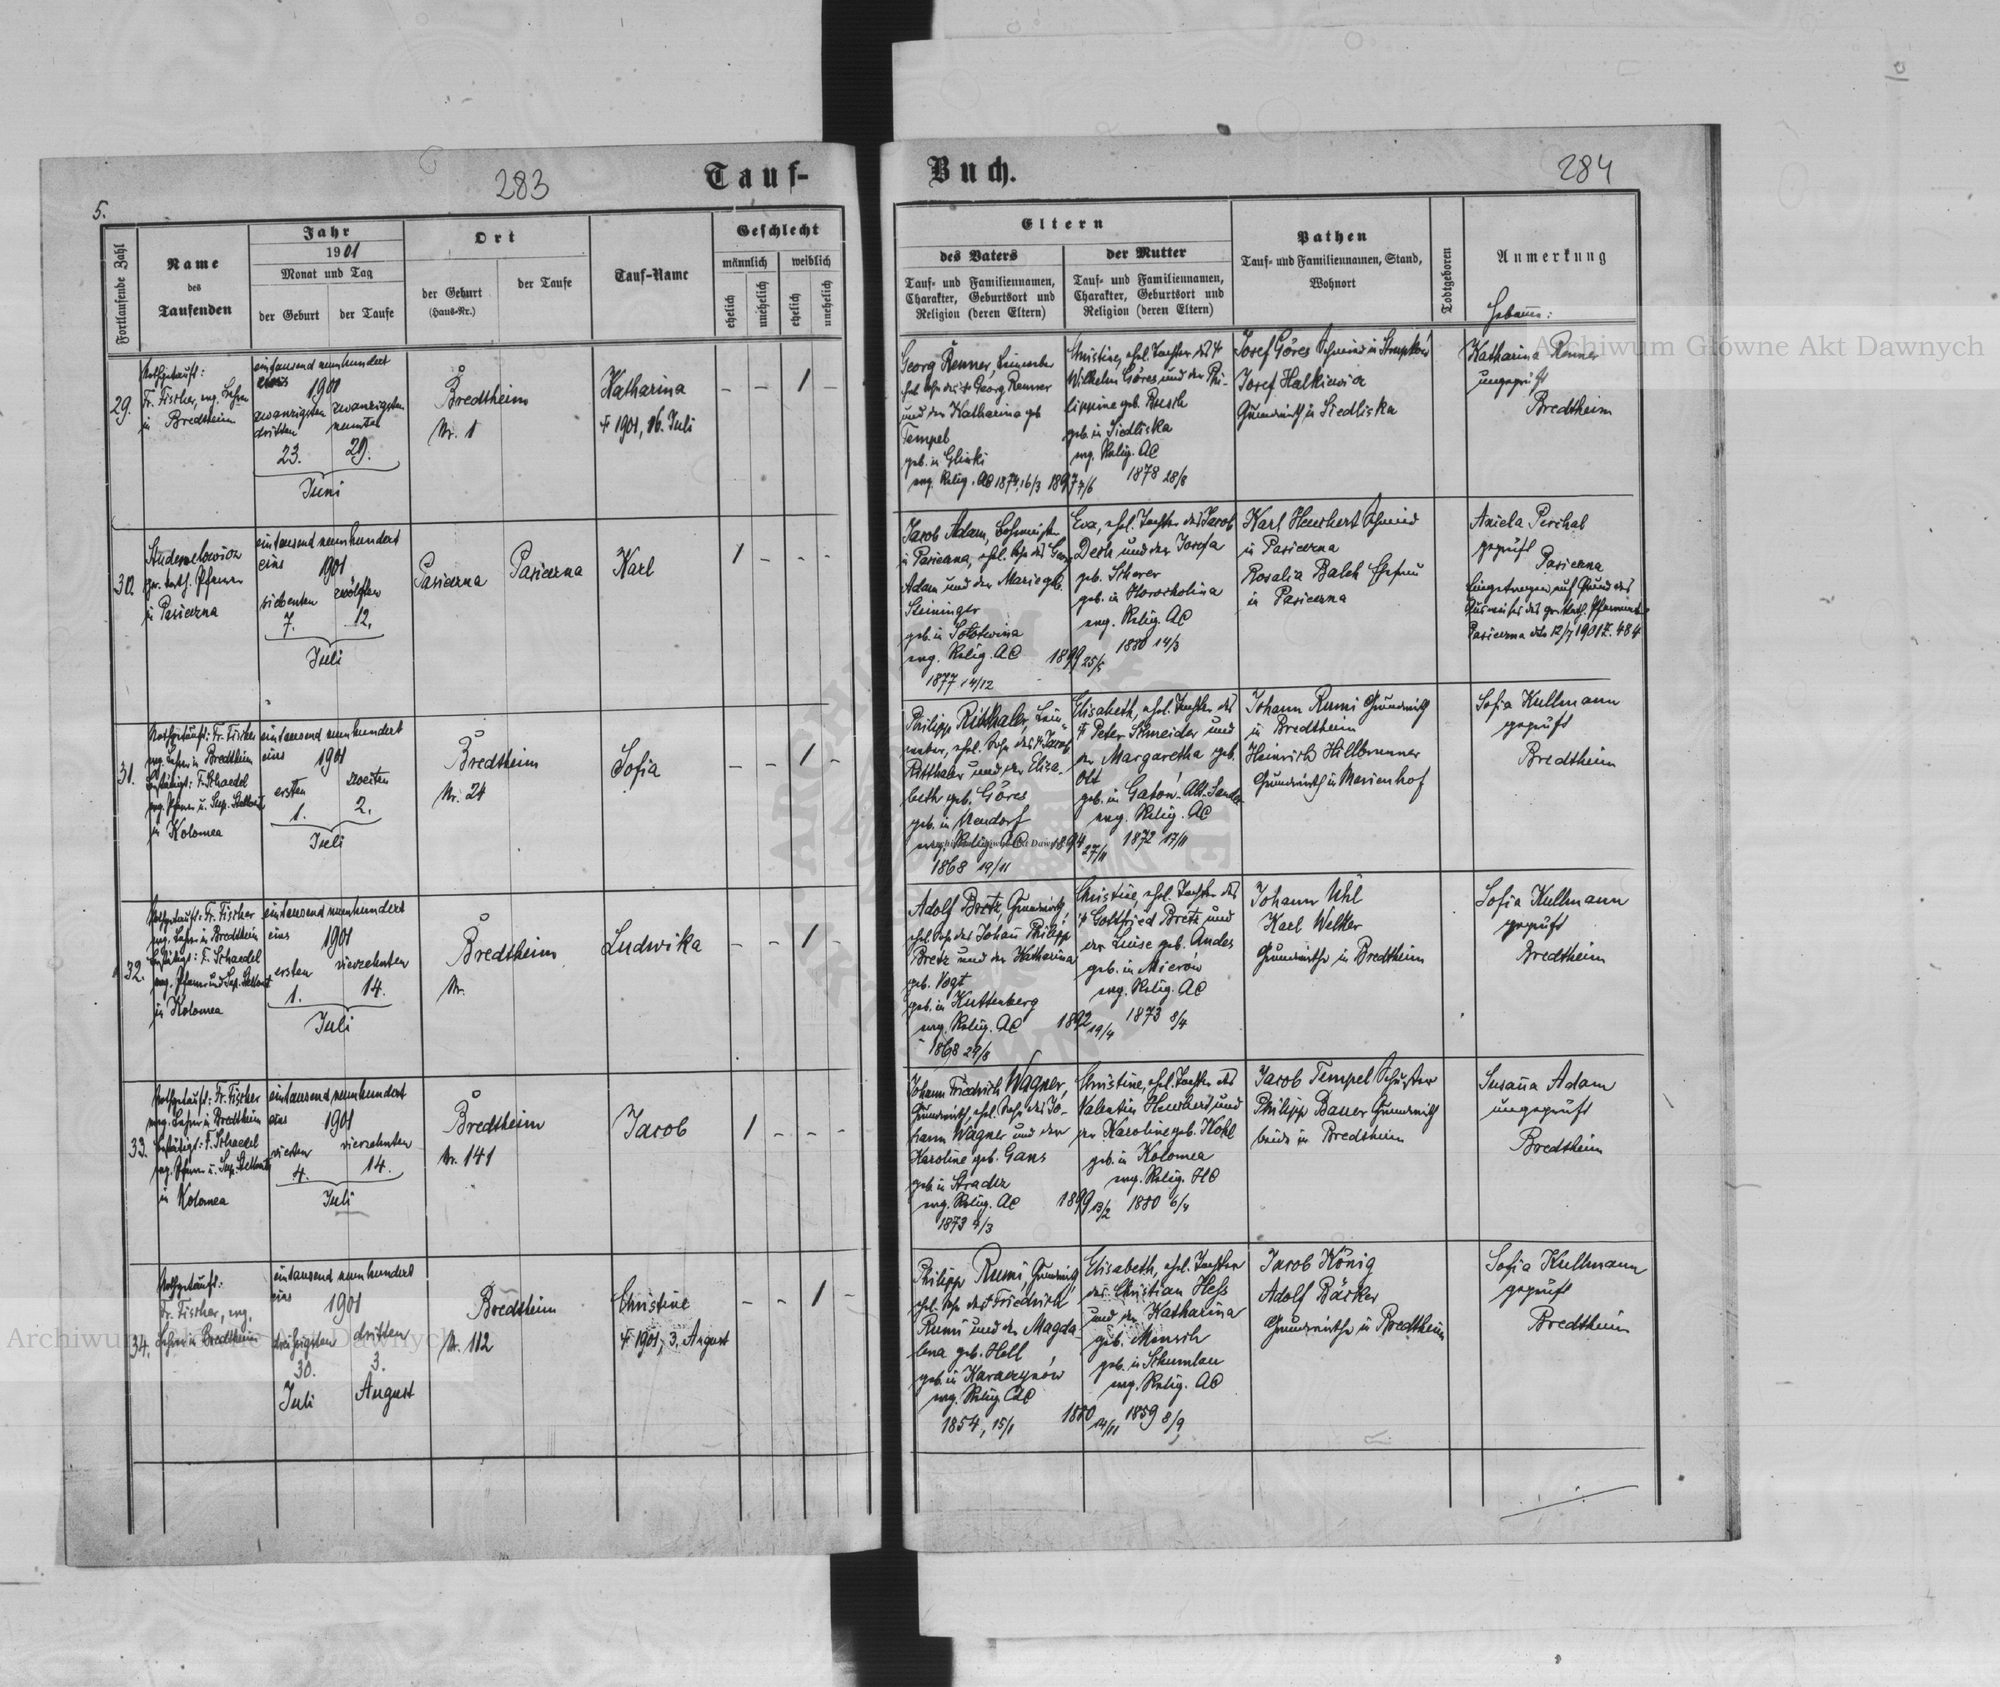 283
Tauf-
5.
Fortlaufende Zahl
Name
des
Taufenden
Jahr
1901
Monat und Tag
der Geburt
der Taufe
Ort
der Geburt
(Haus-Nr.)
der Taufe
Tauf-Name
Geschlecht
männlich
weiblich
ehelich
unehelich
ehelich
unehelich
29.
Nothgetauft:
Fr. Fischer, evg. Lehrer
in Bredtheim
eintausend neunhundert
eins 1901
zwanzigsten zwanzigsten
dritten neunten
23. 29.
Juni
Bredtheim
Nr. 1
Katharina
† 1901, 16. Juli
- - 1 -
30.
gr. kath. Pfarrer
in Pasieczna
eintausend neunhundert
eins 1901
siebenten zwölften
7. 12.
Juli
Pasieczna
Pasieczna
Karl
1 - - -
31.
Nothgetauft: Fr. Fischer
evg. Lehrer in Bredtheim
bestätigt: F. Schaedel
evg. Pfarrer u. Sup. Stellvert.
in Kolomea
eintausend neunhundert
eins 1901
ersten zweiten
1. 2.
Juli
Bredtheim
Nr. 24
Sofia
- - 1 -
32.
Nothgetauft: Fr. Fischer
evg. Lehrer in Bredtheim
bestätigt: F. Schaedel
evg. Pfarrer und Sup. Stellvert.
in Kolomea
eintausend neunhundert
eins 1901
ersten vierzehnten
1. 14.
Juli
Bredtheim
Nr.
Ludwika
- - 1 -
33.
Nothgetauft: Fr. Fischer
evg. Lehrer in Bredtheim
bestätigt: F. Schaedel
evg. Pfarrer u. Sup. Stellvert.
in Kolomea
eintausend neunhundert
eins 1901
vierten vierzehnten
4. 14.
Juli
Bredtheim
Nr. 141
Jacob
1 - - -
34.
Nothgetauft:
Fr. Fischer, evg.
Lehrer in Bredtheim
eintausend neunhundert
eins 1901
dreißigsten dritten
30. 3.
Juli August
Bredtheim
Nr. 112
Christine
† 1901, 3. August
- - 1 -
Buch.
284
Eltern
des Vaters
Tauf- und Familiennamen,
Charakter, Geburtsort und
Religion (deren Eltern)
der Mutter
Tauf- und Familiennamen,
Charakter, Geburtsort und
Religion (deren Eltern)
Pathen
Tauf- und Familiennamen, Stand,
Wohnort
Todtgeboren
Anmerkung
Hebamme:
Georg Renner, Leinweber
ehel. Sohn des † Georg Renner
und der Katharina geb.
Tempel
geb. in Glinki
evg. Relig. AC 1874, 16/3
1897 7/6
Christine, ehel. Tochter des †
Wilhelm Göres und der Phi-
lippine geb. Busch
geb. in Siedliska
evg. Relig. AC
1878 28/8
Josef Göres Schmied in
Josef Halkiewicz
Grundwirth in Siedliska
Katharina Renner
ungeprüft
Bredtheim
Jacob Adam,
in Pasieczna, ehel. Sohn des Georg
Adam und der Marie geb.
Steininger
geb. in Solotwina
evg. Relig. AC
1877 14/12
1899 25/5
Eva, ehel. Tochter des Jacob
Desh und der Josefa
geb. Scherer
geb. in Horocholina
evg. Relig. AC
1880 14/3
Karl Heuchert Schmied
in Pasieczna
Rosalia Balch Ehefrau
in Pasieczna
Aniela Perchal
geprüft
Pasieczna
Eingetragen auf Grund des
Ausweises des gr. kath. Pfarramtes
Pasieczna dto 12/7 1901 Z. 484
Philipp Ritthaler, Lein-
weber, ehel. Sohn des † Jacob
Ritthaler und der Elisa-
beth geb. Göres
geb. in Neudorf
evg. Relig. AC
1868 19/11
1894 27/11
Elisabeth, ehel. Tochter des
† Peter Schneider und
der Margaretha geb.
Ott
geb. in Gaboń-Alt-Sandez
evg. Relig. AC
1872 17/11
Johann Rumi Grundwirth
in Bredtheim
Heinrich Hillbrunner
Grundwirth in Marienhof
Sofia Kullmann
geprüft
Bredtheim
Adolf Bretz, Grundwirth,
ehel. Sohn des Johann Philipp
Bretz und der Katharina
geb. Vogt
geb. in Kuttenberg
evg. Relig. AC
1868 29/8
1892 19/4
Christine, ehel. Tochter des
† Gottfried Bretz und
der Luise geb. Andes
geb. in Mierów
evg. Relig. AC
1873 8/4
Johann Uhl
Karl Welker
Grundwirthe in Bredtheim
Sofia Kullmann
geprüft
Bredtheim
Johann Friedrich Wagner,
Grundwirth, ehel. Sohn des Jo-
hann Wagner und der
Karoline geb. Gans
geb. in Stradcz
evg. Relig. AC
1873 4/3
1899 13/2
Christine, ehel. Tochter des
Valentin Heuchert und
der Karoline geb. Kohl
geb. in Kolomea
evg. Relig. HC
1880 6/4
Jacob Tempel Schuster
Philipp Bauer Grundwirth
beide in Bredtheim
Susanna Adam
ungeprüft
Bredtheim
Philipp Rumi, Grundwirth,
ehel. Sohn des † Friedrich
Rumi und der Magda-
lena geb. Hell
geb. in Karaczynów
evg. Relig. AC
1854, 15/1
1880 14/11
Elisabeth, ehel. Tochter
des Christian Hess
und der Katharina
geb. Minsch
geb. in Schumlau
evg. Relig. AC
1859 8/9
Jacob König
Adolf Bäcker
Grundwirthe in Bredtheim
Sofia Kullmann
geprüft
Bredtheim
Archiwum Główne Akt Dawnych
Archiwum Główne Akt Dawnych